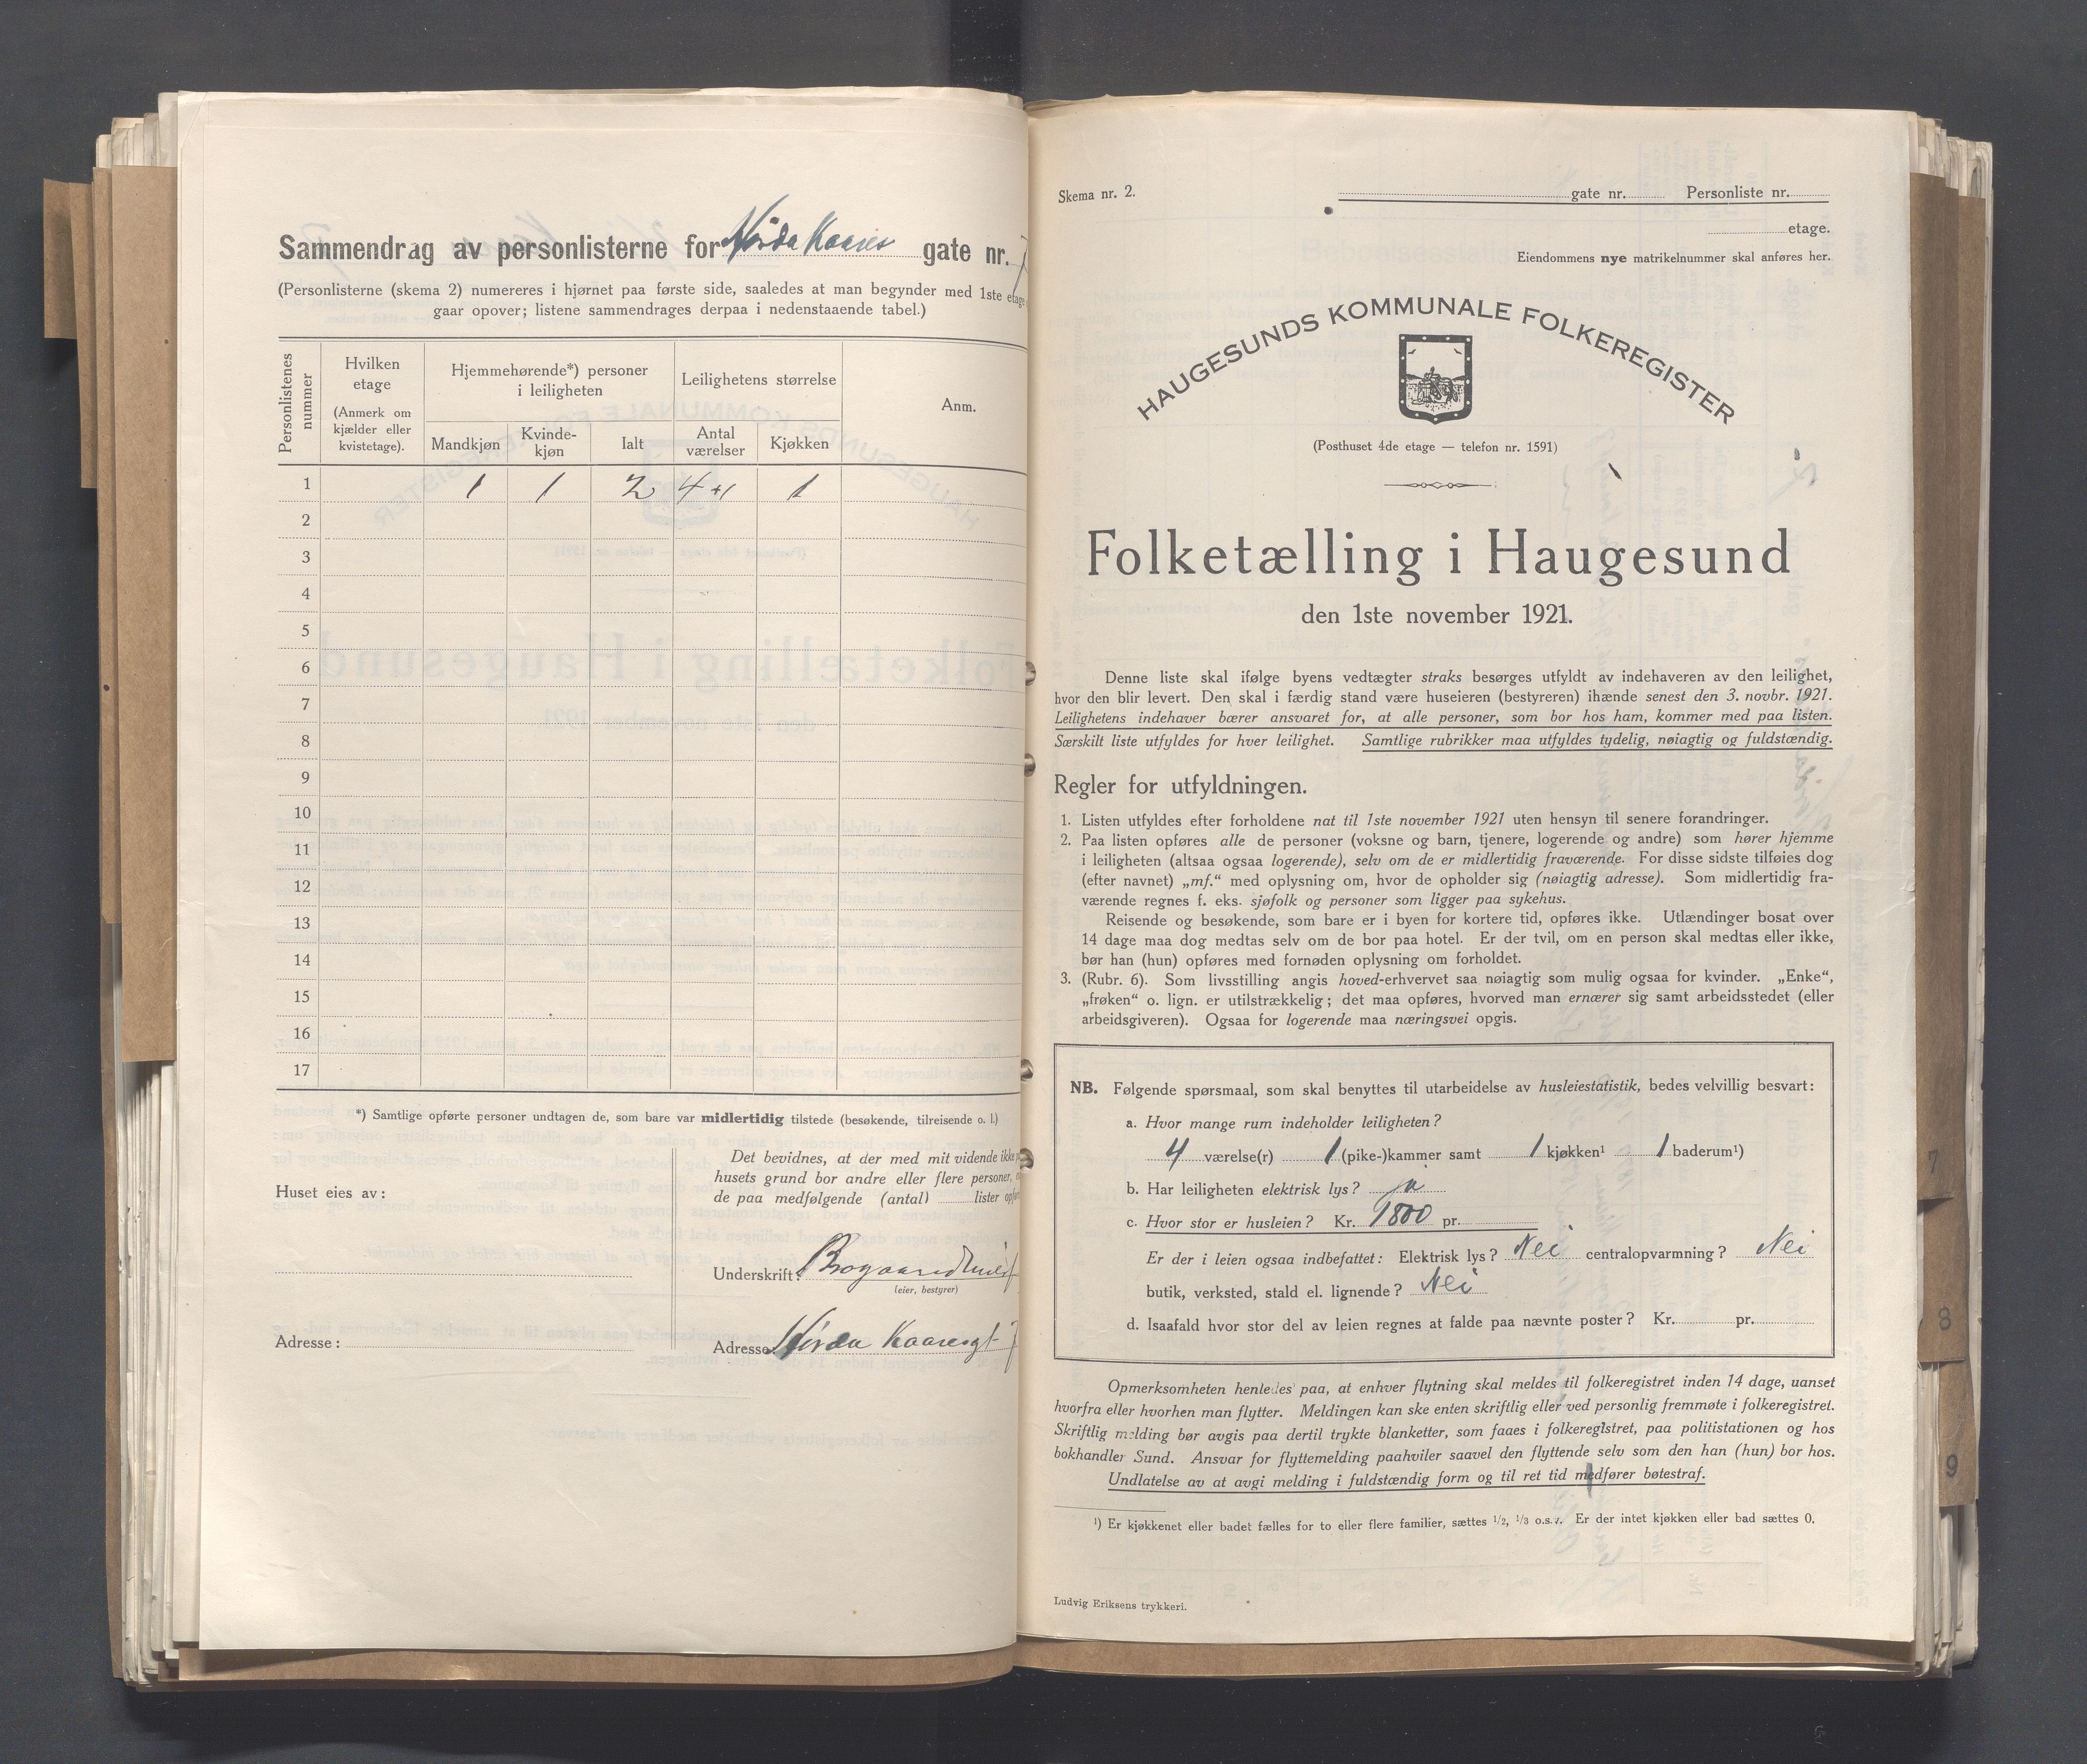 Sammendrag av personlisterne for Norda Kaares gate nr. 7
(Personlisterne (skema 2) numereres i hjørnet paa første side, saaledes at man begynder med 1ste etage
gaar opover; listene sammendrages derpaa i nedenstaaende tabel.)
Personlistenes nummer
Hvilken etage
(Anmerk om kjælder eller kvistetage).
Hjemmehørende*) personer i leiligheten
Mandkjøn
Kvinde-kjøn
Ialt
Leilighetens størrelse
Antal værelser
Kjøkken
Anm.
1 1 1 2 4+1 1
2
3
4
5
6
7
8
9
10
11
12
13
14
15
16
17
*) Samtlige opførte personer undtagen de, som bare var midlertidig tilstede (besøkende, tilreisende o. l.)
Huset eies av:
Adresse:
Det bevidnes, at der med mit vidende ikke
husets grund bor andre eller flere personer,
de paa medfølgende (antal) lister
Underskrift:
(eier, bestyrer)
Adresse: Norda Kaaresgt 7
Skema nr. 2.
gate nr. Personliste nr.
etage.
Eiendommens nye matrikelnummer skal anføres her.
HAUGESUNDS KOMMUNALE FOLKEREGISTER
(Posthuset 4de etage — telefon nr. 1591)
Folketælling i Haugesund
den 1ste november 1921.
Denne liste skal ifølge byens vedtægter straks besørges utfyldt av indehaveren av den leilighet,
hvor den blir levert. Den skal i færdig stand være huseieren (bestyreren) ihænde senest den 3. novbr. 1921.
Leilighetens indehaver bærer ansvaret for, at alle personer, som bor hos ham, kommer med paa listen.
Særskilt liste utfyldes for hver leilighet. Samtlige rubrikker maa utfyldes tydelig, nøiagtig og fuldstændig.
Regler for utfyldningen.
1. Listen utfyldes efter forholdene nat til 1ste november 1921 uten hensyn til senere forandringer.
2. Paa listen opføres alle de personer (voksne og barn, tjenere, logerende og andre) som hører hjemme
i leiligheten (altsaa ogsaa logerende), selv om de er midlertidig fraværende. For disse sidste tilføies dog
(efter navnet) „mf.“ med oplysning om, hvor de opholder sig (nøiagtig adresse). Som midlertidig fra-
værende regnes f. eks. sjøfolk og personer som ligger paa sykehus.
Reisende og besøkende, som bare er i byen for kortere tid, opføres ikke. Utlændinger bosat over
14 dage maa dog medtas selv om de bor paa hotel. Er der tvil, om en person skal medtas eller ikke,
bør han (hun) opføres med fornøden oplysning om forholdet.
3. (Rubr. 6). Som livsstilling angis hoved-erhvervet saa nøiagtig som mulig ogsaa for kvinder. „Enke“,
„frøken“ o. lign. er utilstrækkelig; det maa opføres, hvorved man ernærer sig samt arbeidsstedet (eller
arbeidsgiveren). Ogsaa for logerende maa næringsvei opgis.
NB. Følgende spørsmaal, som skal benyttes til utarbeidelse av husleiestatistik, bedes velvillig besvart:
a. Hvor mange rum indeholder leiligheten?
4 værelse(r) 1 (pike-)kammer samt 1 kjøkken¹ 1 baderum¹)
b. Har leiligheten elektrisk lys? ja
c. Hvor stor er husleien? Kr. 1800 pr.
Er der i leien ogsaa indbefattet: Elektrisk lys? Nei centralopvarmning? Nei
butik, verksted, stald el. lignende? Nei
d. Isaafald hvor stor del av leien regnes at falde paa nævnte poster? Kr. pr.
Opmerksomheten henledes paa, at enhver flytning skal meldes til folkeregistret inden 14 dage, uanset
hvorfra eller hvorhen man flytter. Meldingen kan ske enten skriftlig eller ved personlig fremmøte i folkeregistret.
Skriftlig melding bør avgis paa dertil trykte blanketter, som faaes i folkeregistret, paa politistationen og hos
bokhandler Sund. Ansvar for flyttemelding paahviler saavel den flyttende selv som den han (hun) bor hos.
Undlatelse av at avgi melding i fuldstændig form og til ret tid medfører bøtestraf.
¹) Er kjøkkenet eller badet fælles for to eller flere familier, sættes 1/2, 1/3 o.s.v. Er der intet kjøkken eller bad sættes 0.
Ludvig Eriksens trykkeri.
7
8
9